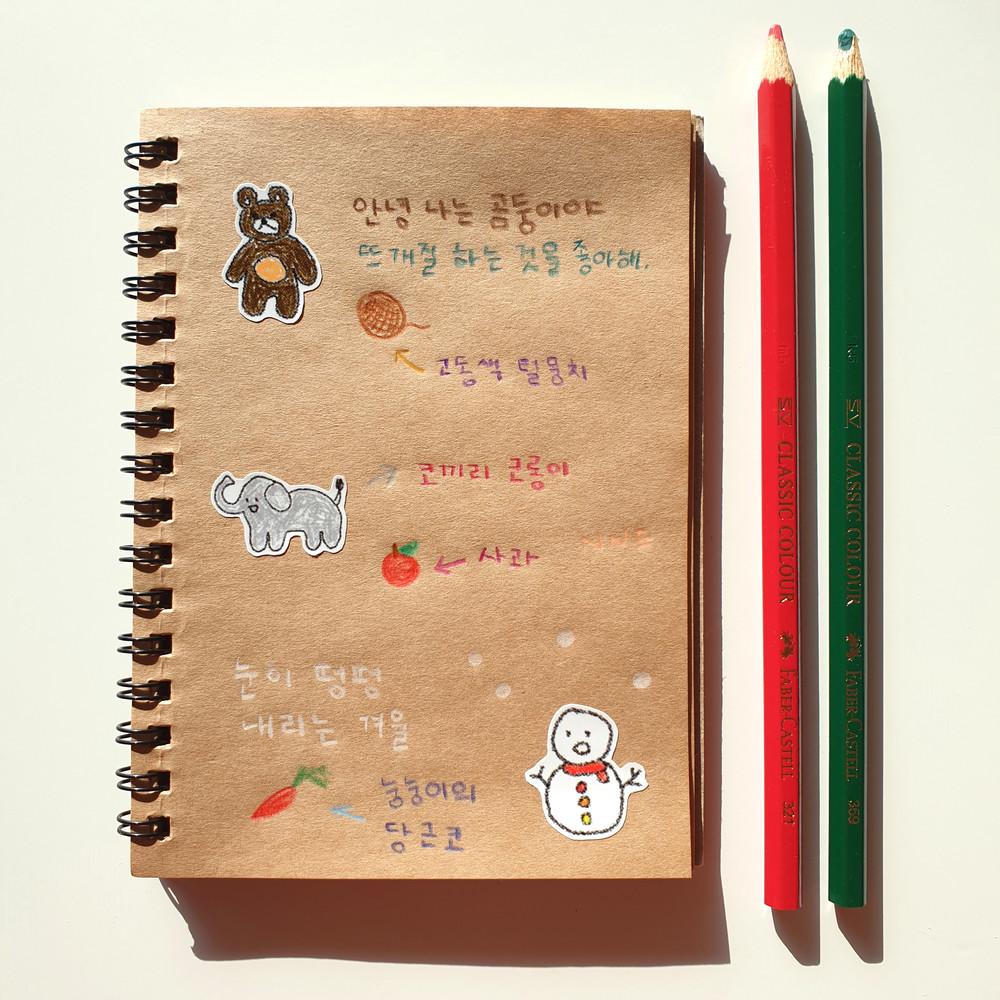 안녕 나는 곰둥이야
뜨개질 하는 것을 좋아해.
고동색 털뭉치
코끼리 코롱이
사과
눈이 펑펑
내리는 겨울
눙눙이의
당근코
SV CLASSIC COLOUR FABER-CASTELL 321
SV CLASSIC COLOUR FABER-CASTELL 359